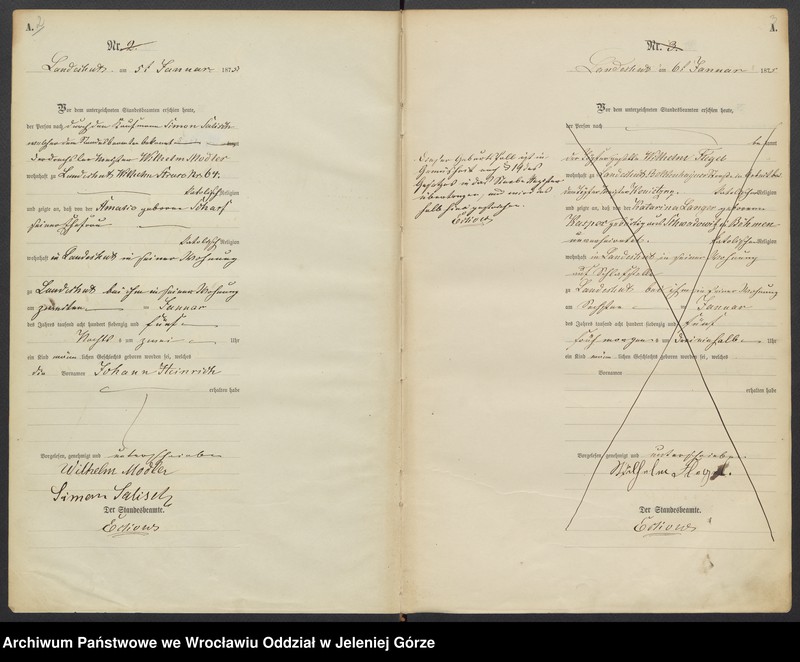 A.
Nr. 2.
Landeshut am 5t Januar 1875
Vor dem unterzeichneten Standesbeamten erschien heute,
der Person nach durch den Kaufmann Simon Salisch
welcher dem Standesbeamten bekannt
der Drechslermeister Wilhelm Modler
wohnhaft zu Landeshut Wilhelm Strasse Nr. 64.
katolischer Religion
und zeigte an, daß von der Amalia geborene Scharf
seiner Ehefrau
katolischer Religion
wohnhaft in Landeshut in seiner Wohnung
zu Landeshut bei ihm in seiner Wohnung
am zweiten Januar
des Jahres tausend acht hundert siebenzig und fünf
Nachts um zwei Uhr
ein Kind männlichen Geschlechts geboren worden sei, welches
die Vornamen Johann Heinrich
erhalten habe
Vorgelesen, genehmigt und unterschrieben
Wilhelm Modler
Simon Salisch
Der Standesbeamte.
3
A.
Nr. 3.
Landeshut am 6t Januar 1875
Vor dem unterzeichneten Standesbeamten erschien heute,
der Person nach
bekannt
der Töpfergeselle Wilhelm
wohnhaft zu Landeshut
dem Töpfermeister
Religion
und zeigte an, daß von der Katarina Langer geborene
Kasper gebürtig aus in Böhmen
unverheiratet. katolischer Religion
wohnhaft in Landeshut in seiner Wohnung
auf Schlafstelle
zu Landeshut bei ihm in seiner Wohnung
am Sechsten Januar
des Jahres tausend acht hundert siebenzig und fünf
früh morgens um Uhr
ein Kind männlichen Geschlechts geboren worden sei, welches
Vornamen
erhalten habe
Vorgelesen, genehmigt und unterschrieben
Wilhelm
Der Standesbeamte.
Dieser Geburtsfall ist in
Gemässheit auf § 19 des
Gesetzes in das Neben Register
übertragen, und wird deshalb hier gestrichen.
Archiwum Państwowe we Wrocławiu Oddział w Jeleniej Górze